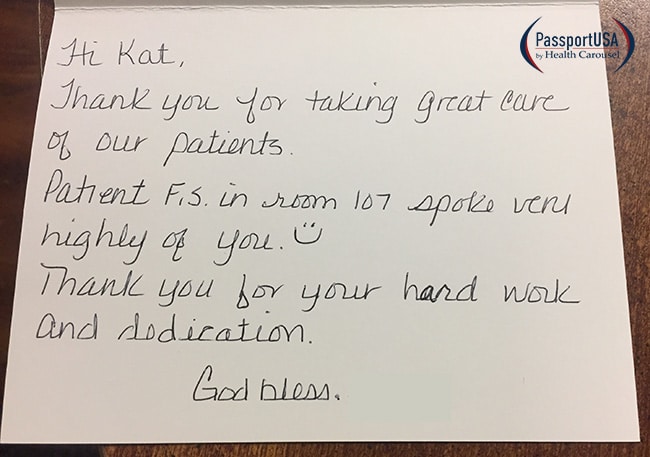 PassportUSA
by Health Carousel
Hi Kat,
Thank you for taking great care
of our patients.
Patient F.S. in room 107 spoke very
highly of you. ☺
Thank you for your hard work
and dedication.
God bless.